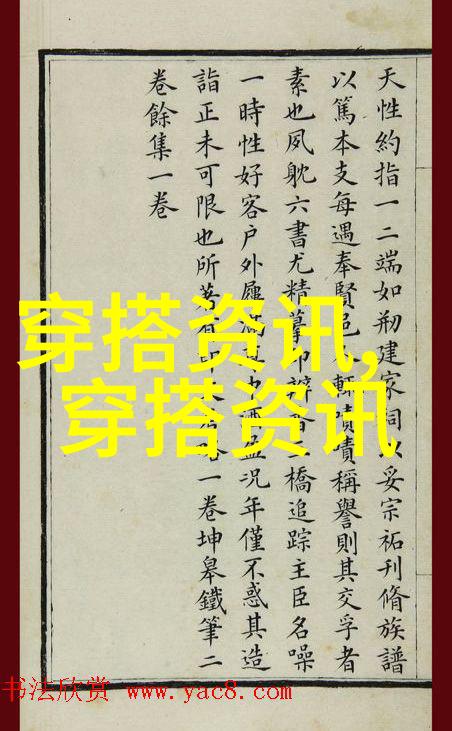 天性約指一二端如剏建家祠以妥宗祏刊脩族譜
以篤本支每遇奉賢邑輒嘖嘖稱譽則其交孚者
素也夙躭六書尤精摹印辨橋追踪主臣名噪
一時性好客户外屨滿況年僅不惑其造
詣正未可限也所著有印一卷坤皋鐵筆二
卷餘集一卷
穿搭资讯,
穿搭资讯
书法欣赏 www.yac8.com